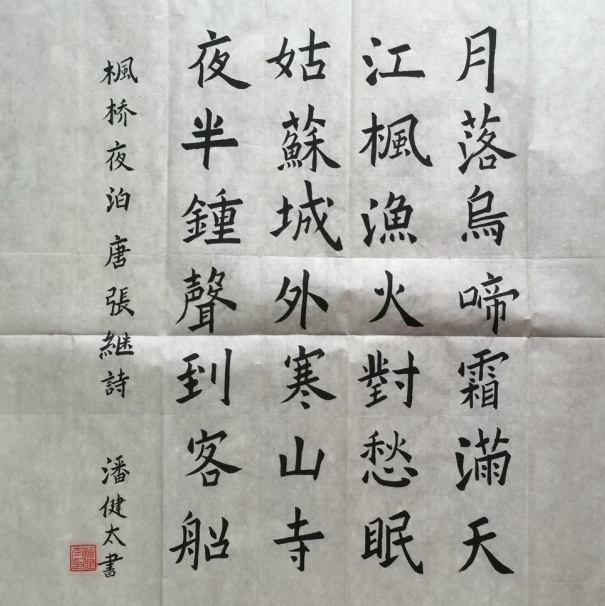 月落烏啼霜滿天
江楓漁火對愁眠
姑蘇城外寒山寺
夜半鍾聲到客船
楓桥夜泊 唐張継詩 潘健太書